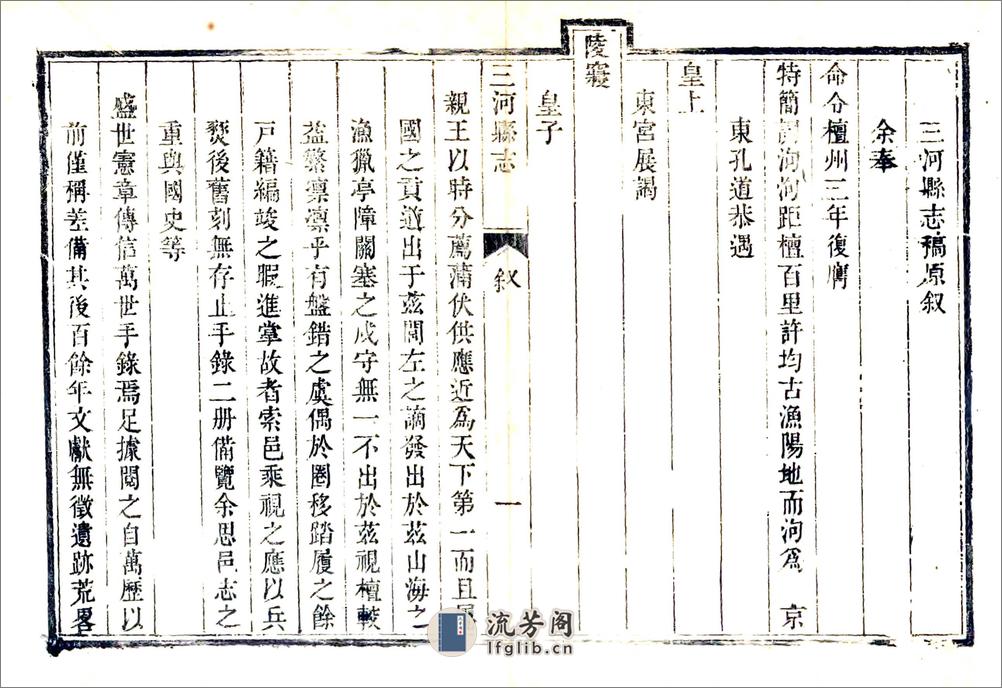 三河縣志稿原叙
余奉
命令檀州三年復膺
特簡泃泃距檀百里許均古漁陽地而泃爲 京
東孔道恭遇
皇上
東宮展謁
陵寢
皇子
三河縣志 叙 一
親王以時分薦蘋伏供應近爲天下第一而且
國之貢道出于茲閭左之謫發出於茲山海之
漁獵亭障關塞之戍守無一不出於茲視檀較
益繁凛凛乎有盤錯之虞偶於圈移踏履之餘
戸籍編竣之暇進掌故者索邑乘視之應以兵
燹後舊刻無存止手錄二册備覽余思邑志之
重與國史等
盛世憲章傳信萬世手錄焉足據閱之自萬歷以
前僅稱差備其後百餘年文獻無徵遺跡荒畧
流芳阁
lfglib.cn